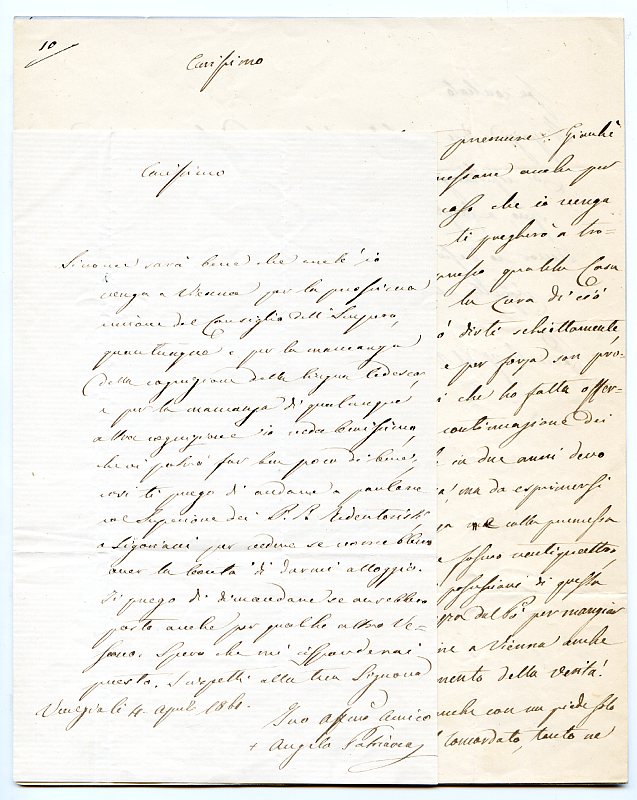 10
Carissimo
Carissimo
Siccome sarà bene che anch'io
venga a Vienna per la prossima
unione del Consiglio dell'Impero,
quantunque e per la mancanza
della cognizione della lingua tedesca
e per la mancanza di qualunque
altra cognizione io veda benissimo,
che vi potrò far ben poco di bene,
così ti prego di andare a parlare
col Superiore dei P. P. Redentoristi,
o Ligoriani per vedere se vorrebbero
aver la bontà di darmi alloggio.
Ti prego di dimandare se avrebbero
posto anche per qualche altro Ve-
scovo. Spero che mi risponderai
presto. Rispetti alla tua Signora
Venezia li 4 aprile 1861.
Tuo affmo amico
+ Angelo Patriarca
premure. Giacchè
anche per
caso che io venga
ti pregherò a tro-
qualche Casa
la cura di ciò
dirti schiettamente,
e per forza son pro-
che ho fatta offer-
continuazione dei
in due anni devo
ma da esprimersi
colla promessa
fossero ventiquattro,
di questa
dal Pò per mangiar
a Vienna anche
della verità!
anche con un piede solo
Concordato, tanto ne